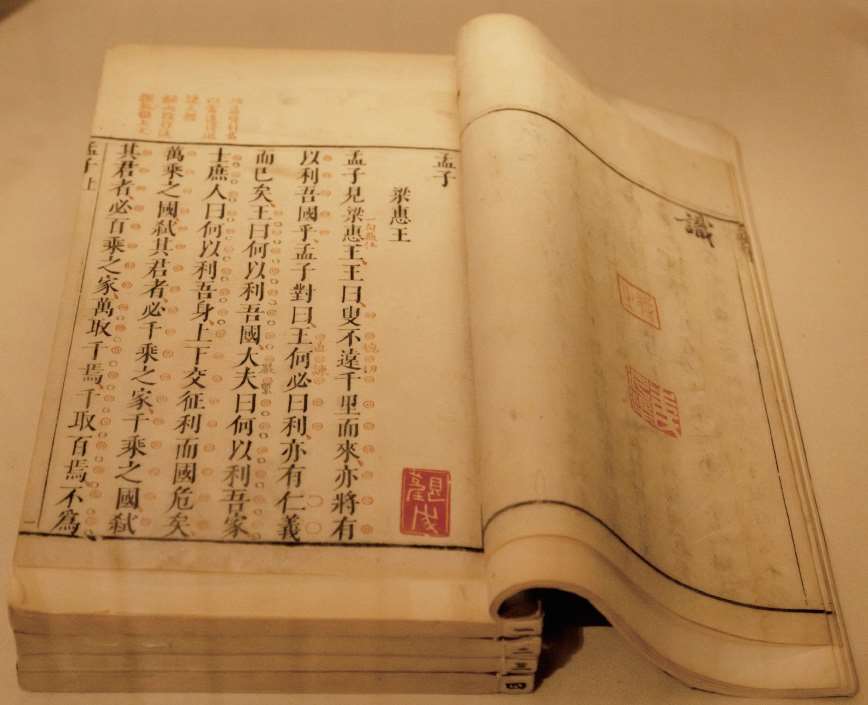 識
孟子
梁惠王
孟子見梁惠王、王曰、叟不遠千里而來、亦將有
以利吾國乎、孟子對曰、王何必曰利、亦有仁義
而已矣、王曰、何以利吾國、大夫曰、何以利吾家、
士庶人曰、何以利吾身、上下交征利、而國危矣、
萬乘之國、弒其君者、必千乘之家、千乘之國、弒
其君者、必百乘之家、萬取千焉、千取百焉、不爲
孟子上
二
三
四